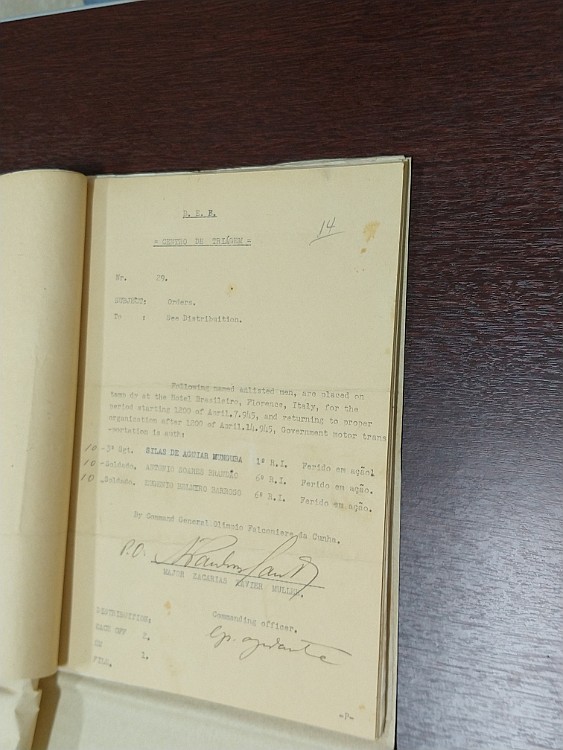 14
= CENTRO DE TRIÁGEM =
Nr. 29.
SUBJECT: Orders.
To : See Distribuition.
Following named enlisted men, are placed on
temp dy at the Hotel Brasileiro, Florence, Italy, for the
period starting 1200 of Avril.7.945, and returning to proper
organization after 1200 of Avril.14.945, Government motor trans
-portation is auth:
10 -3º Sgt. SILAS DE AGUIAR MUNGUBA 1º R.I. Ferido em ação.
10 -Soldado. ANTONIO SOARES 6º R.I. Ferido em ação.
10 -Soldado. BELMIRO 6º R.I. Ferido em ação.
By Command General Olimpio Falconiere da Cunha.
P.O.
MAJOR ZACARIAS XAVIER MULLER.
DISTRIBUITION: Commanding officer.
EACH OFF 2. Cp. ajudante
1.
FILE.
-P-